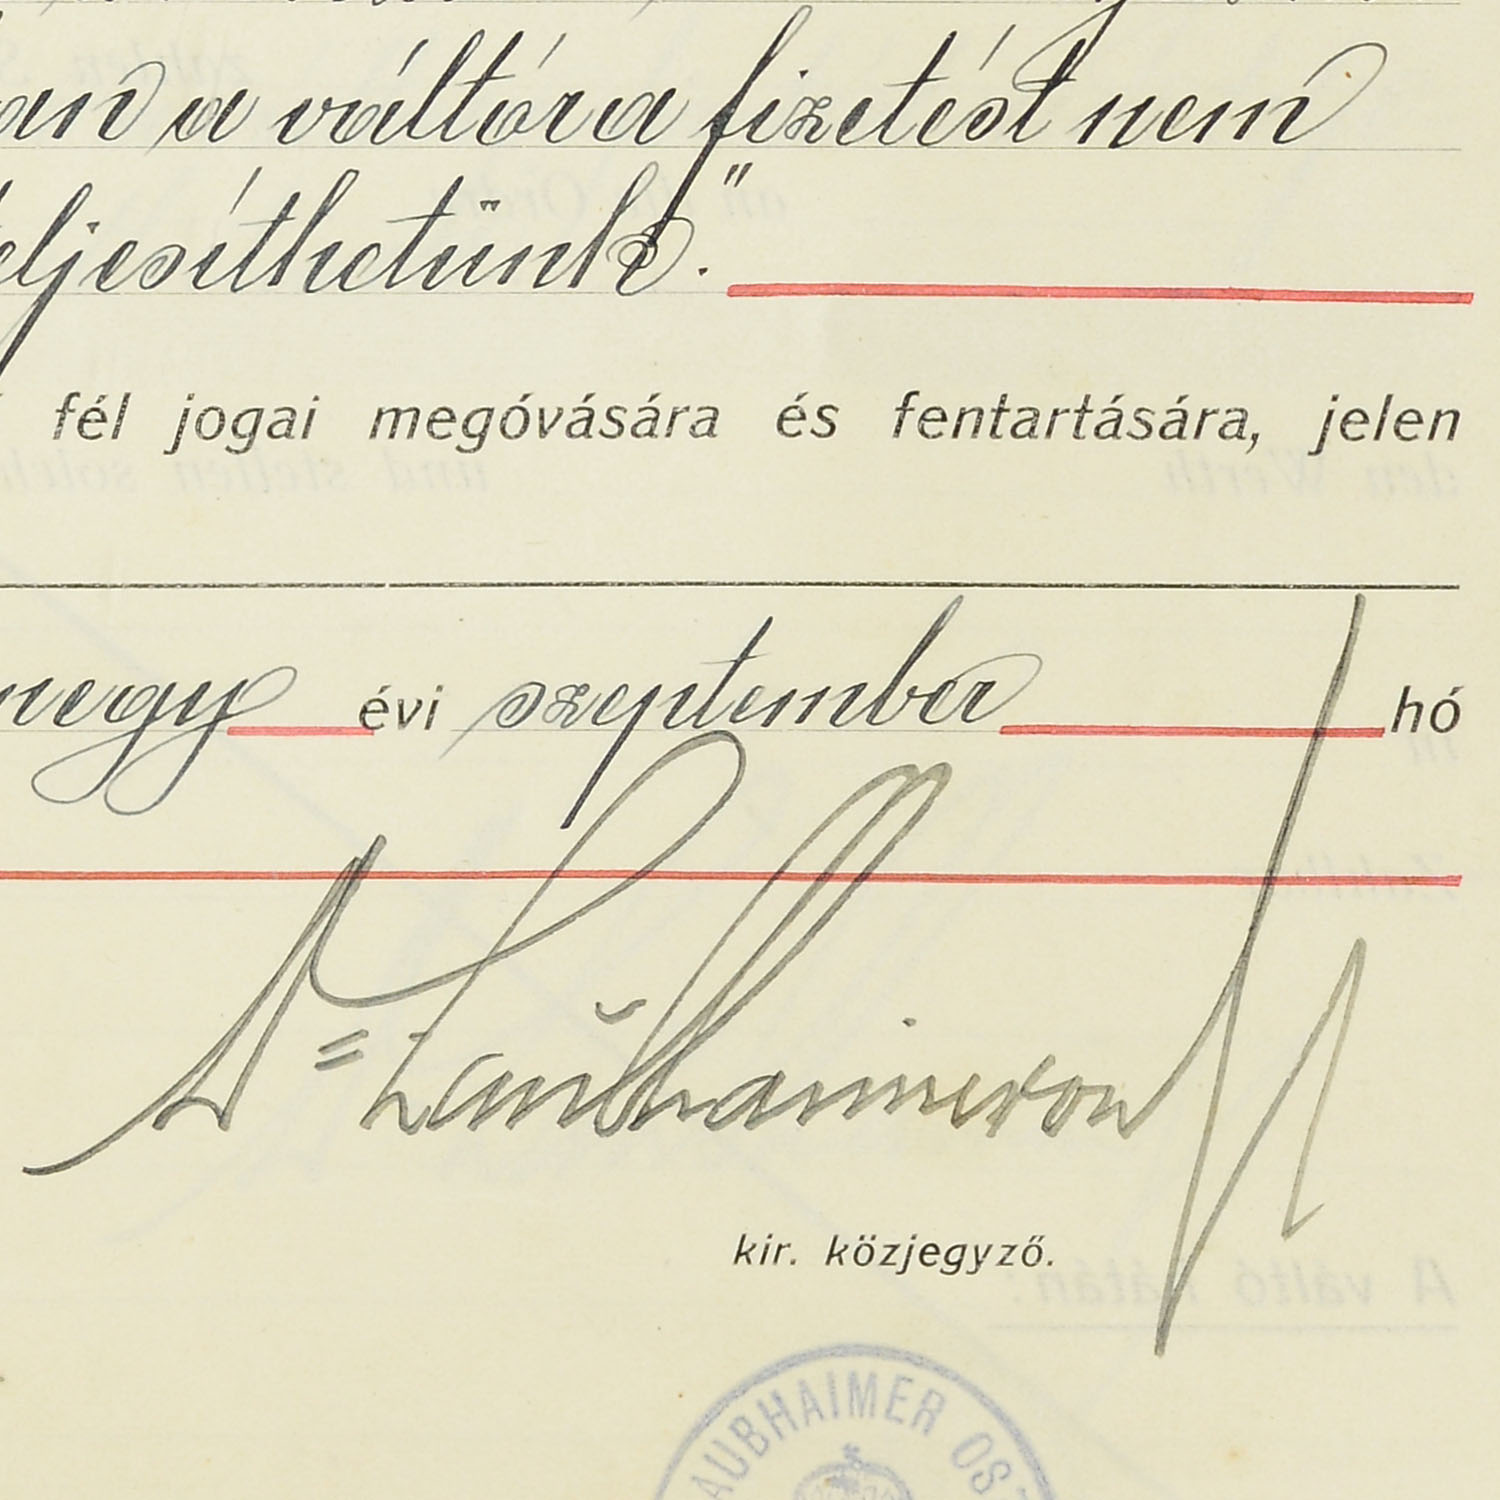 an a váltóra fizetést nem
eljesíthetünk."
fél jogai megóvására és fentartására, jelen
negy évi szeptember hó
Dr Laubhaimer
kir. közjegyző.
AUBHAIMER OS